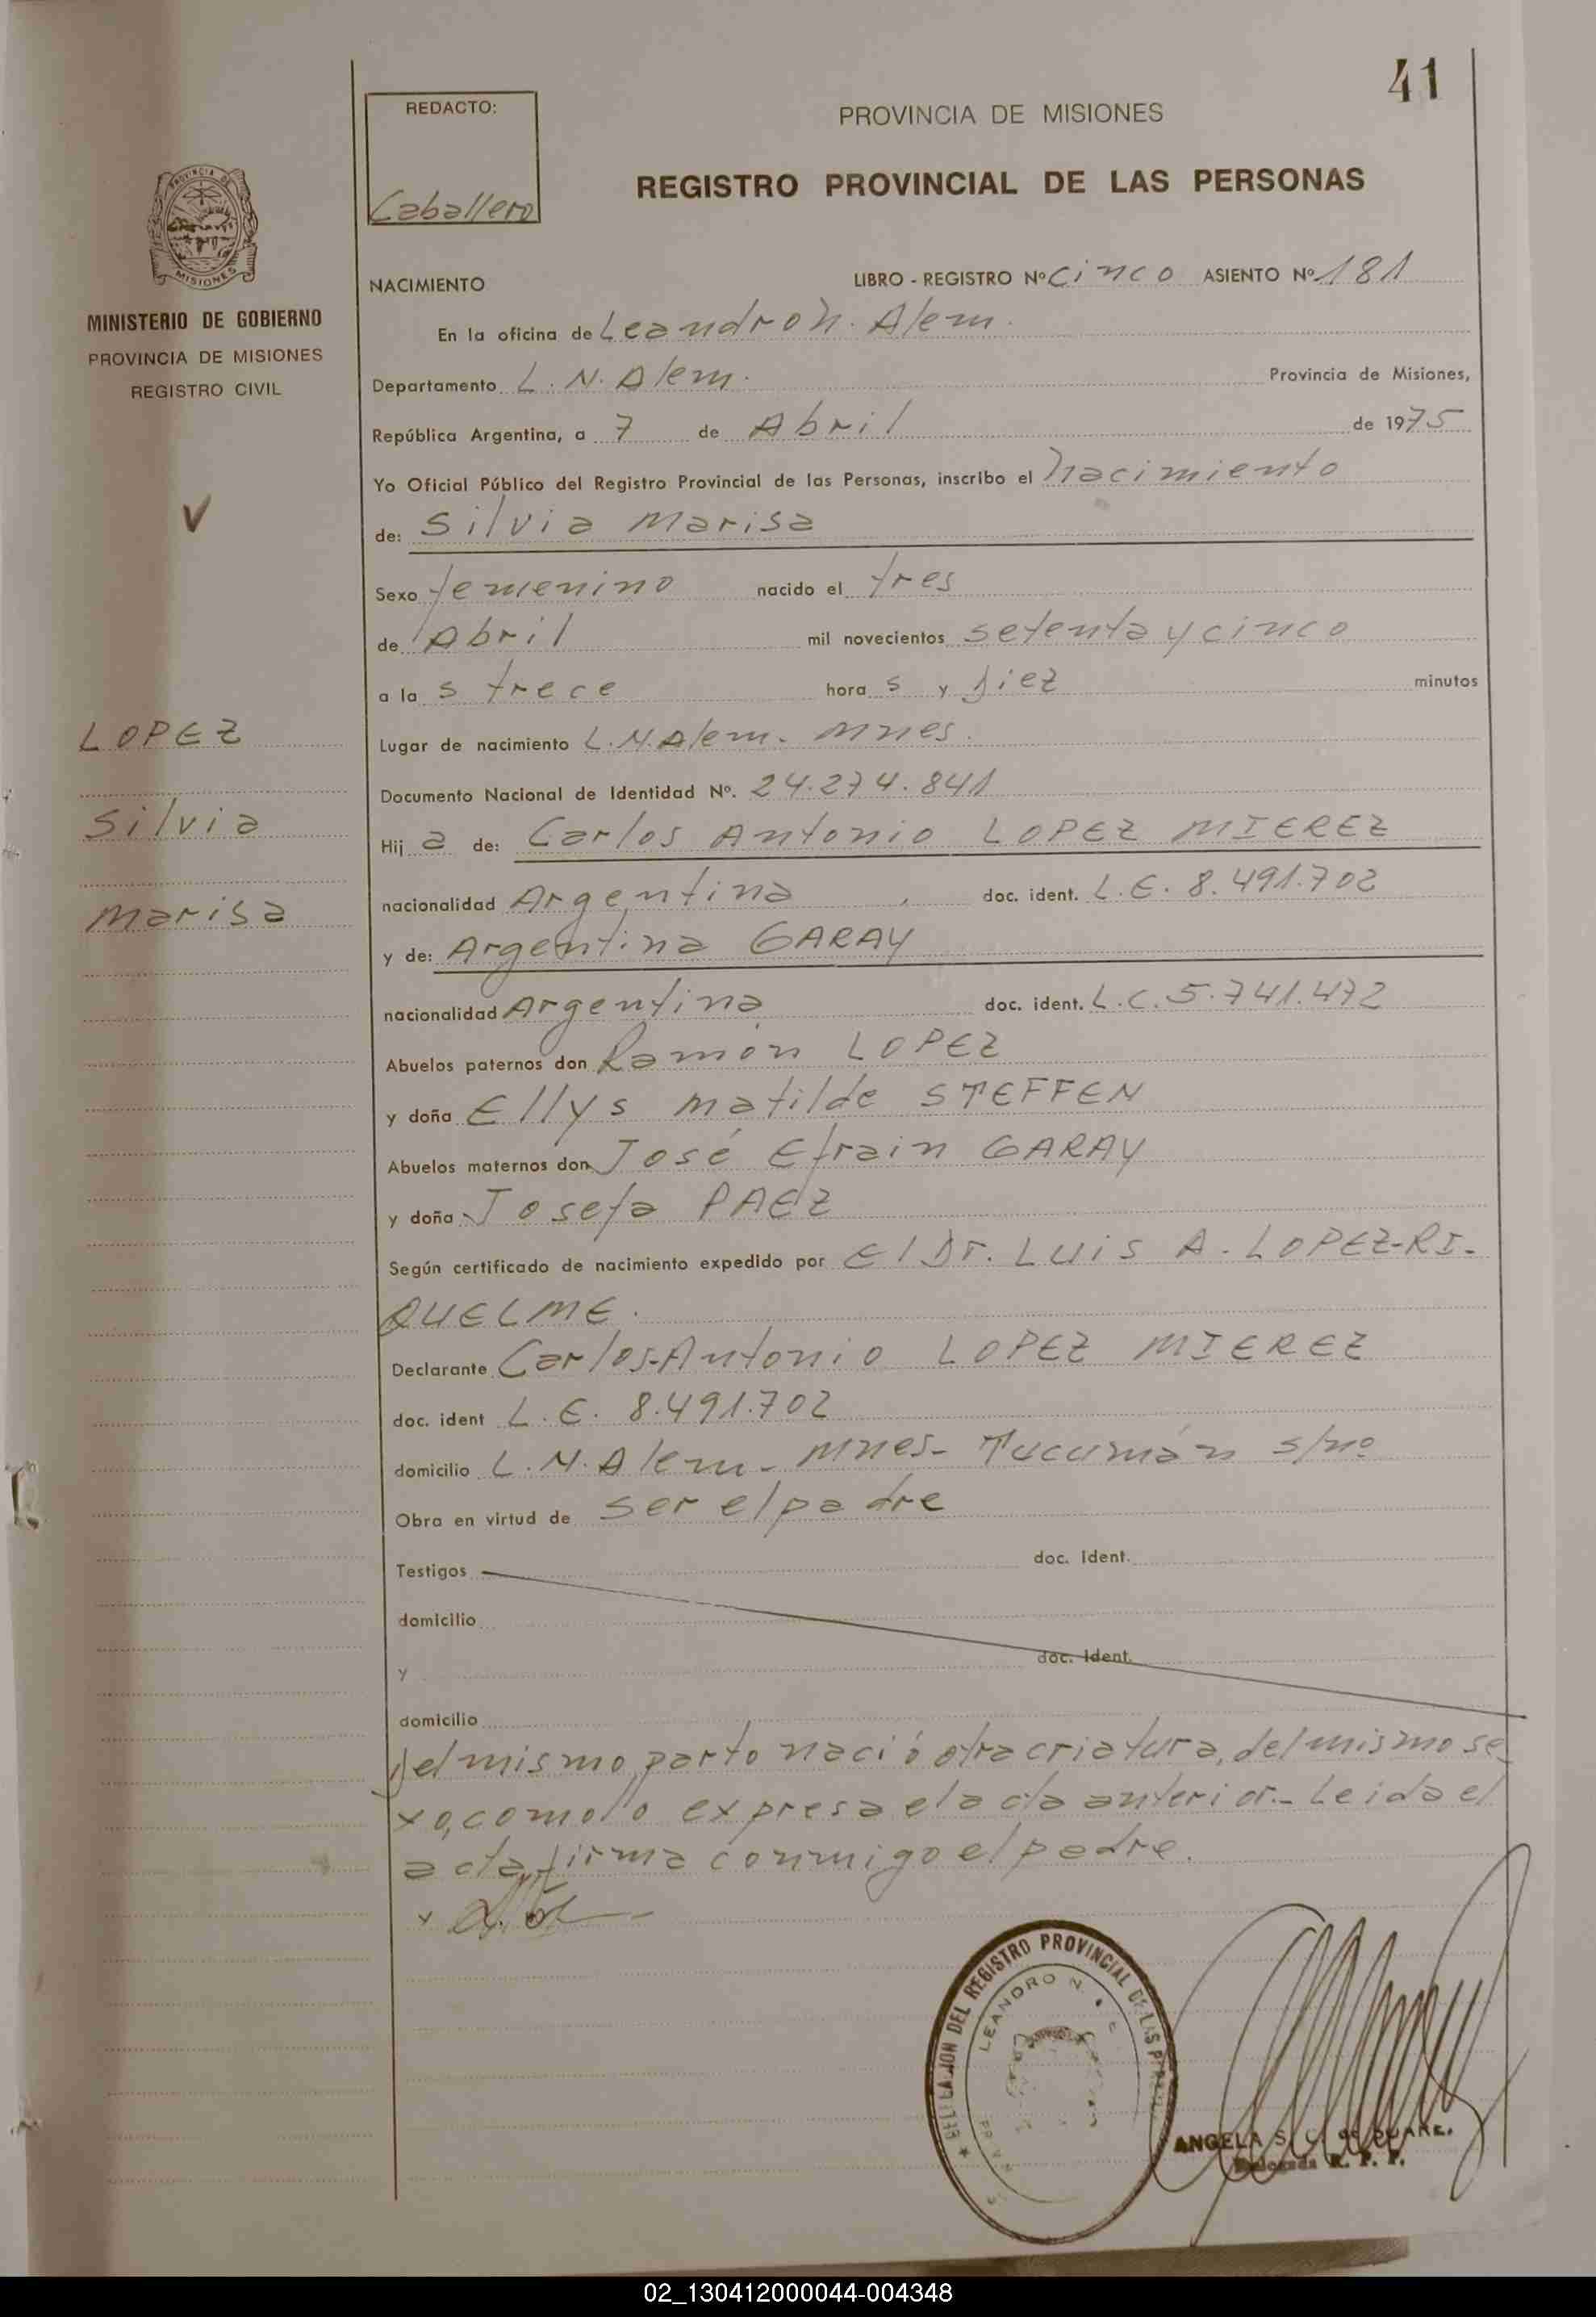 41
REDACTO:
Caballero
PROVINCIA DE MISIONES
REGISTRO PROVINCIAL DE LAS PERSONAS
PROVINCIA DE
MISIONES
MINISTERIO DE GOBIERNO
PROVINCIA DE MISIONES
REGISTRO CIVIL
V
NACIMIENTO LIBRO - REGISTRO Nº Cinco ASIENTO Nº 181
En la oficina de Leandro N. Alem.
Departamento L. N. Alem. Provincia de Misiones,
República Argentina, a 7 de Abril de 1975
Yo Oficial Público del Registro Provincial de las Personas, inscribo el nacimiento
de: Silvia Marisa
Sexo femenino nacido el tres
de Abril mil novecientos setenta y cinco
a la s trece hora s y diez minutos
LOPEZ
Silvia
Marisa
Lugar de nacimiento L.N.Alem. Mnes.
Documento Nacional de Identidad Nº. 24.274.841
Hij a de: Carlos Antonio LOPEZ MIEREZ
nacionalidad Argentina, doc. ident. L.E. 8.491.702
y de: Argentina GARAY
nacionalidad Argentina doc. ident. L.C. 5.741.472
Abuelos paternos don Ramón LOPEZ
y doña Ellys Matilde STEFFEN
Abuelos maternos don José Efrain GARAY
y doña Josefa PAEZ
Según certificado de nacimiento expedido por El Dr. LUIS A. LOPEZ-RI-
QUELME.
Declarante Carlos-Antonio LOPEZ MIEREZ
doc. ident L.E. 8.491.702
domicilio L.N.Alem- Mnes- Tucumán s/nº
Obra en virtud de ser el padre
Testigos doc. Ident.
domicilio
y doc. Ident.
domicilio
del mismo parto nació otra criatura, del mismo se-
xo, como lo expresa el acta anterior.- Leida el
acta, firma conmigo el padre.
★ DELEGACION DEL REGISTRO PROVINCIAL DE LAS
LEANDRO N.
ANGELA S. C. DE DUARE.
Delegada R. P. P.
02_130412000044-004348